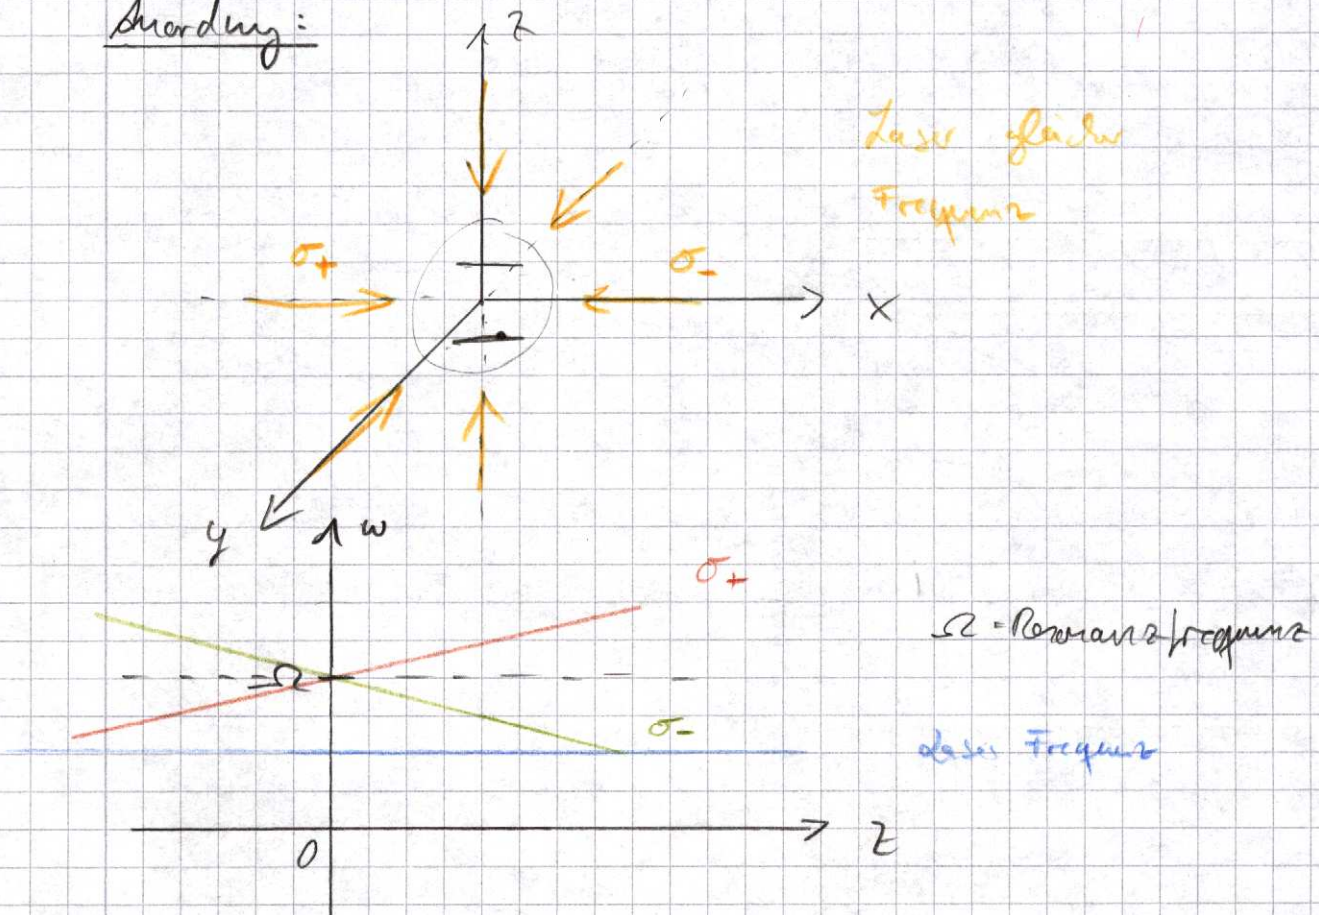 Anordnung:
z
Laser gleicher
Frequenz
σ+
σ-
x
y
ω
σ+
Ω = Resonanzfrequenz
Ω
σ-
Laser Frequenz
z
0